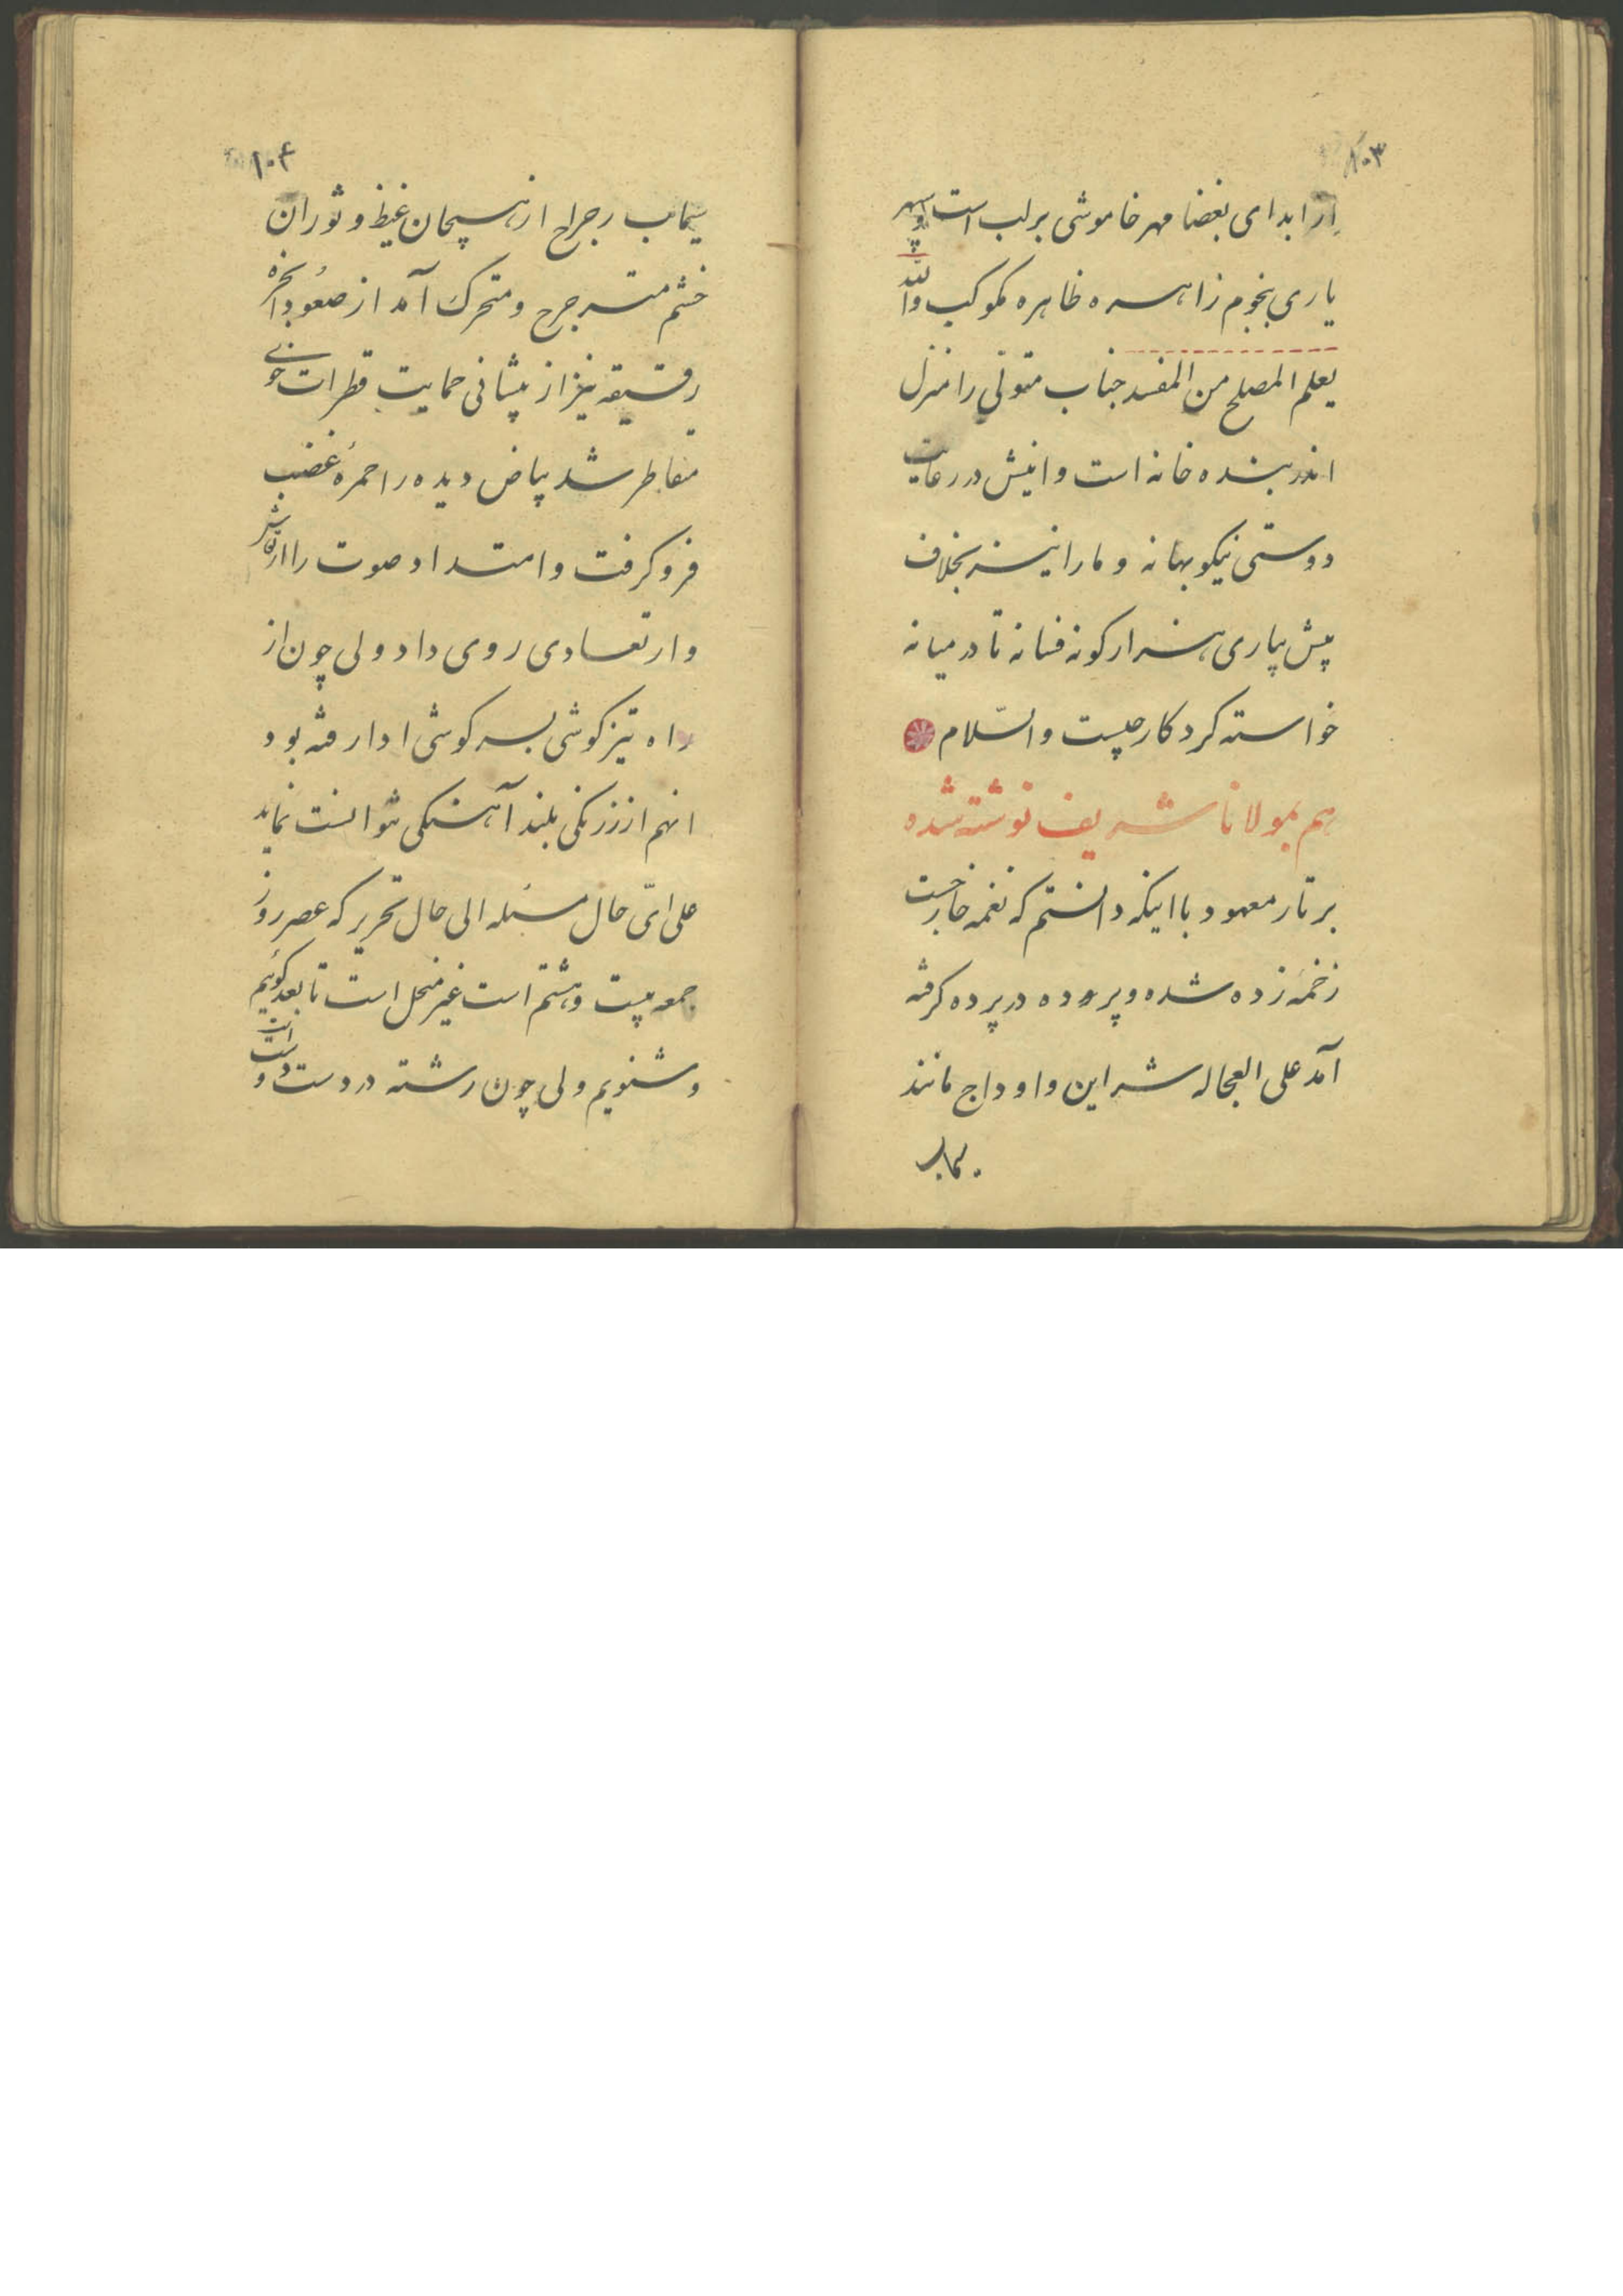 ۱۰۳
از ابدای بغضا مهر خاموشی بر لب است و سپهر
یاری بنجوم زاهره ظاهره مکوکب والله
یعلم المصلح من المفسد جناب متولی را منزل
اندر بنده خانه است و انیش در رعایت
دوستی نیکو بهانه و ما را نیز بخلاف
پیش پیاری هزار کونه فسانه تا در میانه
خواسته کردکار چیست والسّلام
هم بمولانا شریف نوشته شده
بر تار معهود با اینکه دانستم که نغمه خارجست
زخمهٔ زده شده و پروده در پرده کرفته
آمد علی العجاله شراین و اوداج مانند
سیماب
۱۰۴
سیماب رجراج از هیجان غیظ و ثوران
خشم مترجرج و متحرک آمد از صعود ابخره
رقیقه نیز از پیشانی حمایت قطرات خوی
متقاطر شد بیاض دیده را حمرهٔ غضب
فرو کرفت و امتداد صوت را ارتعاش
و ارتعادی روی داد ولی چون از
راه تیز کوشی بسر کوشی ادا رفته بود
انهم از زرنکی بلند آهنکی نتوانست نماید
علی ایّ حال مسئله الی حال تحریر که عصر روز
جمعه بیست و هشتم است غیر منحل است تا بعد کوئیم
و شنویم ولی چون رشته در دست دوست است و